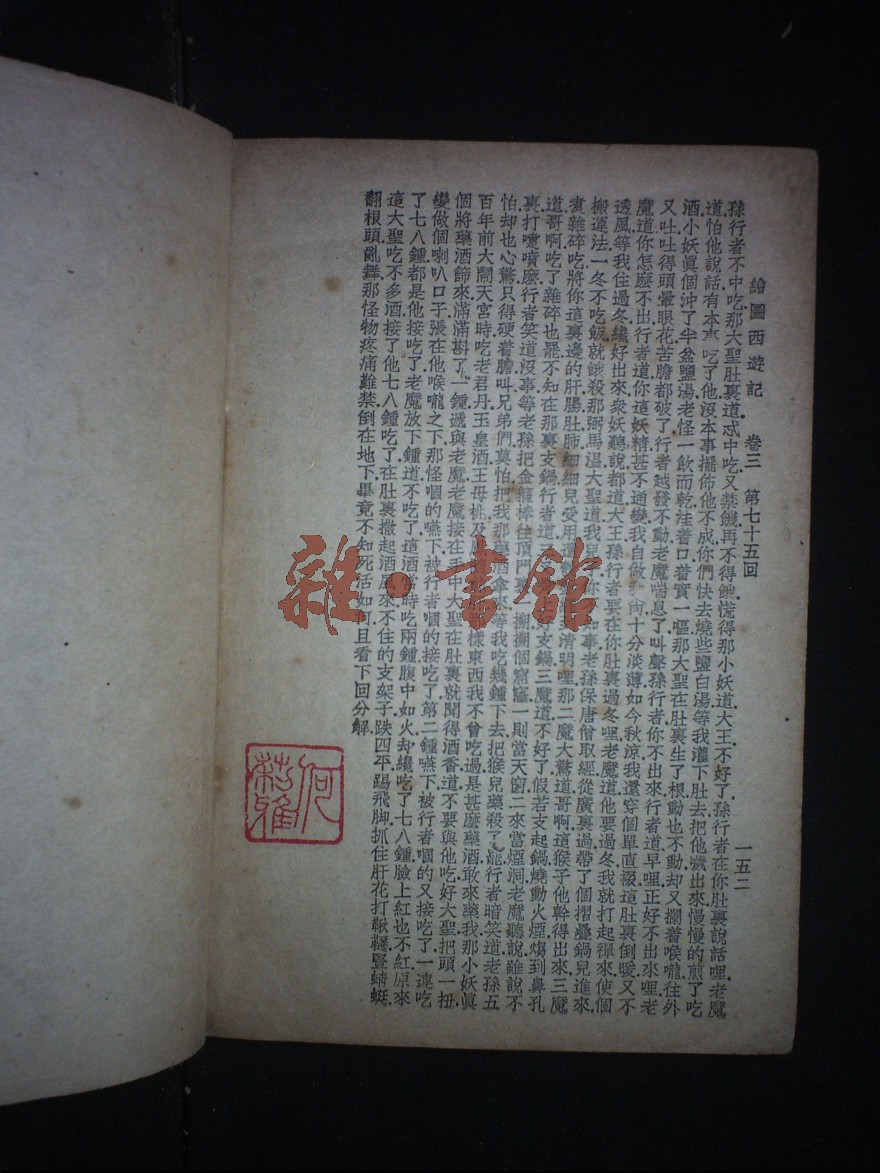 繪圖西遊記 卷三 第七十五回 一五二
孫行者不中吃.那大聖肚裏道.忒中吃.又禁饑.再不得餓.慌得那小妖道.大王不好了.孫行者在你肚裏說話哩.老魔
道.怕他說話.有本事吃了他.沒本事擺佈他不成.你們快去燒些鹽白湯.等我灌下肚去.把他噦出來.慢慢的煎了吃
酒.小妖眞個沖了半盆鹽湯.老怪一飲而乾.洼着口.着實一嘔.那大聖在肚裏生了根.動也不動.却又攔着喉嚨.往外
又吐.吐得頭暈眼花.苦膽都破了.行者越發不動.老魔喘息了.叫聲孫行者.你不出來.行者道.早哩.正好不出來哩.老
魔道.你怎麽不出.行者道.你這妖精.甚不通變.我自做 尙.十分淡薄.如今秋涼.我還穿個單直裰.這肚裏倒暖.又不
透風.等我住過冬纔好出來.衆妖聽說.都道大王.孫行者要在你肚裏過冬哩.老魔道.他要過冬.我就打起禪來.使個
搬運法.一冬不吃飯.就餓殺那弼馬溫.大聖道.我兒子.你 知事.老孫保唐僧取經.從廣裏過.帶了個摺疊鍋兒.進來
煑雜碎吃.將你這裏邊的肝腸肚肺.細細兒受用.還 到淸明哩.那二魔大驚道.哥啊.這猴子他幹得出來.三魔
道.哥啊.吃了雜碎也罷.不知在那裏支鍋.行者道. 好支鍋.三魔道.不好了.假若支起鍋.燒動火煙.煼到鼻孔
裏.打嚏噴麽.行者笑道.沒事.等老孫把金箍棒往頂門裏一搠.搠個窟窿.一則當天窗.二來當煙洞.老魔聽說.雖說不
怕.却也心驚.只得硬着膽叫.兄弟們莫怕.把我那藥酒拿來.等我吃幾鍾下去.把猴兒藥殺了罷.行者暗笑道.老孫五
百年前大鬧天宮時.吃老君丹.玉皇酒.王母桃.及鳳 樣東西我不曾吃過.是甚麽藥酒.敢來藥我.那小妖眞
個將藥酒篩來.滿滿斟了一鍾.遞與老魔.老魔接在手中.大聖在肚裏就聞得酒香.道不要與他吃.好大聖.把頭一扭.
變做個喇叭口子.張在他喉嚨之下.那怪嘓的嚥下.被行者嘓的接吃了.第二鍾嚥下.被行者嘓的又接吃了.一連吃
了七八鍾.都是他接吃了.老魔放下鍾道.不吃了.這酒常時吃兩鍾.腹中如火.却纔吃了七八鍾.臉上紅也不紅.原來
這大聖吃不多酒.接了他七八鍾吃了.在肚裏撒起酒風來.不住的支架子.跌四平.踢飛脚.抓住肝花打鞦韆.豎蜻蜓.
翻根頭亂舞.那怪物疼痛難禁.倒在地下.畢竟不知死活如何.且看下回分解.
雜·書館
何